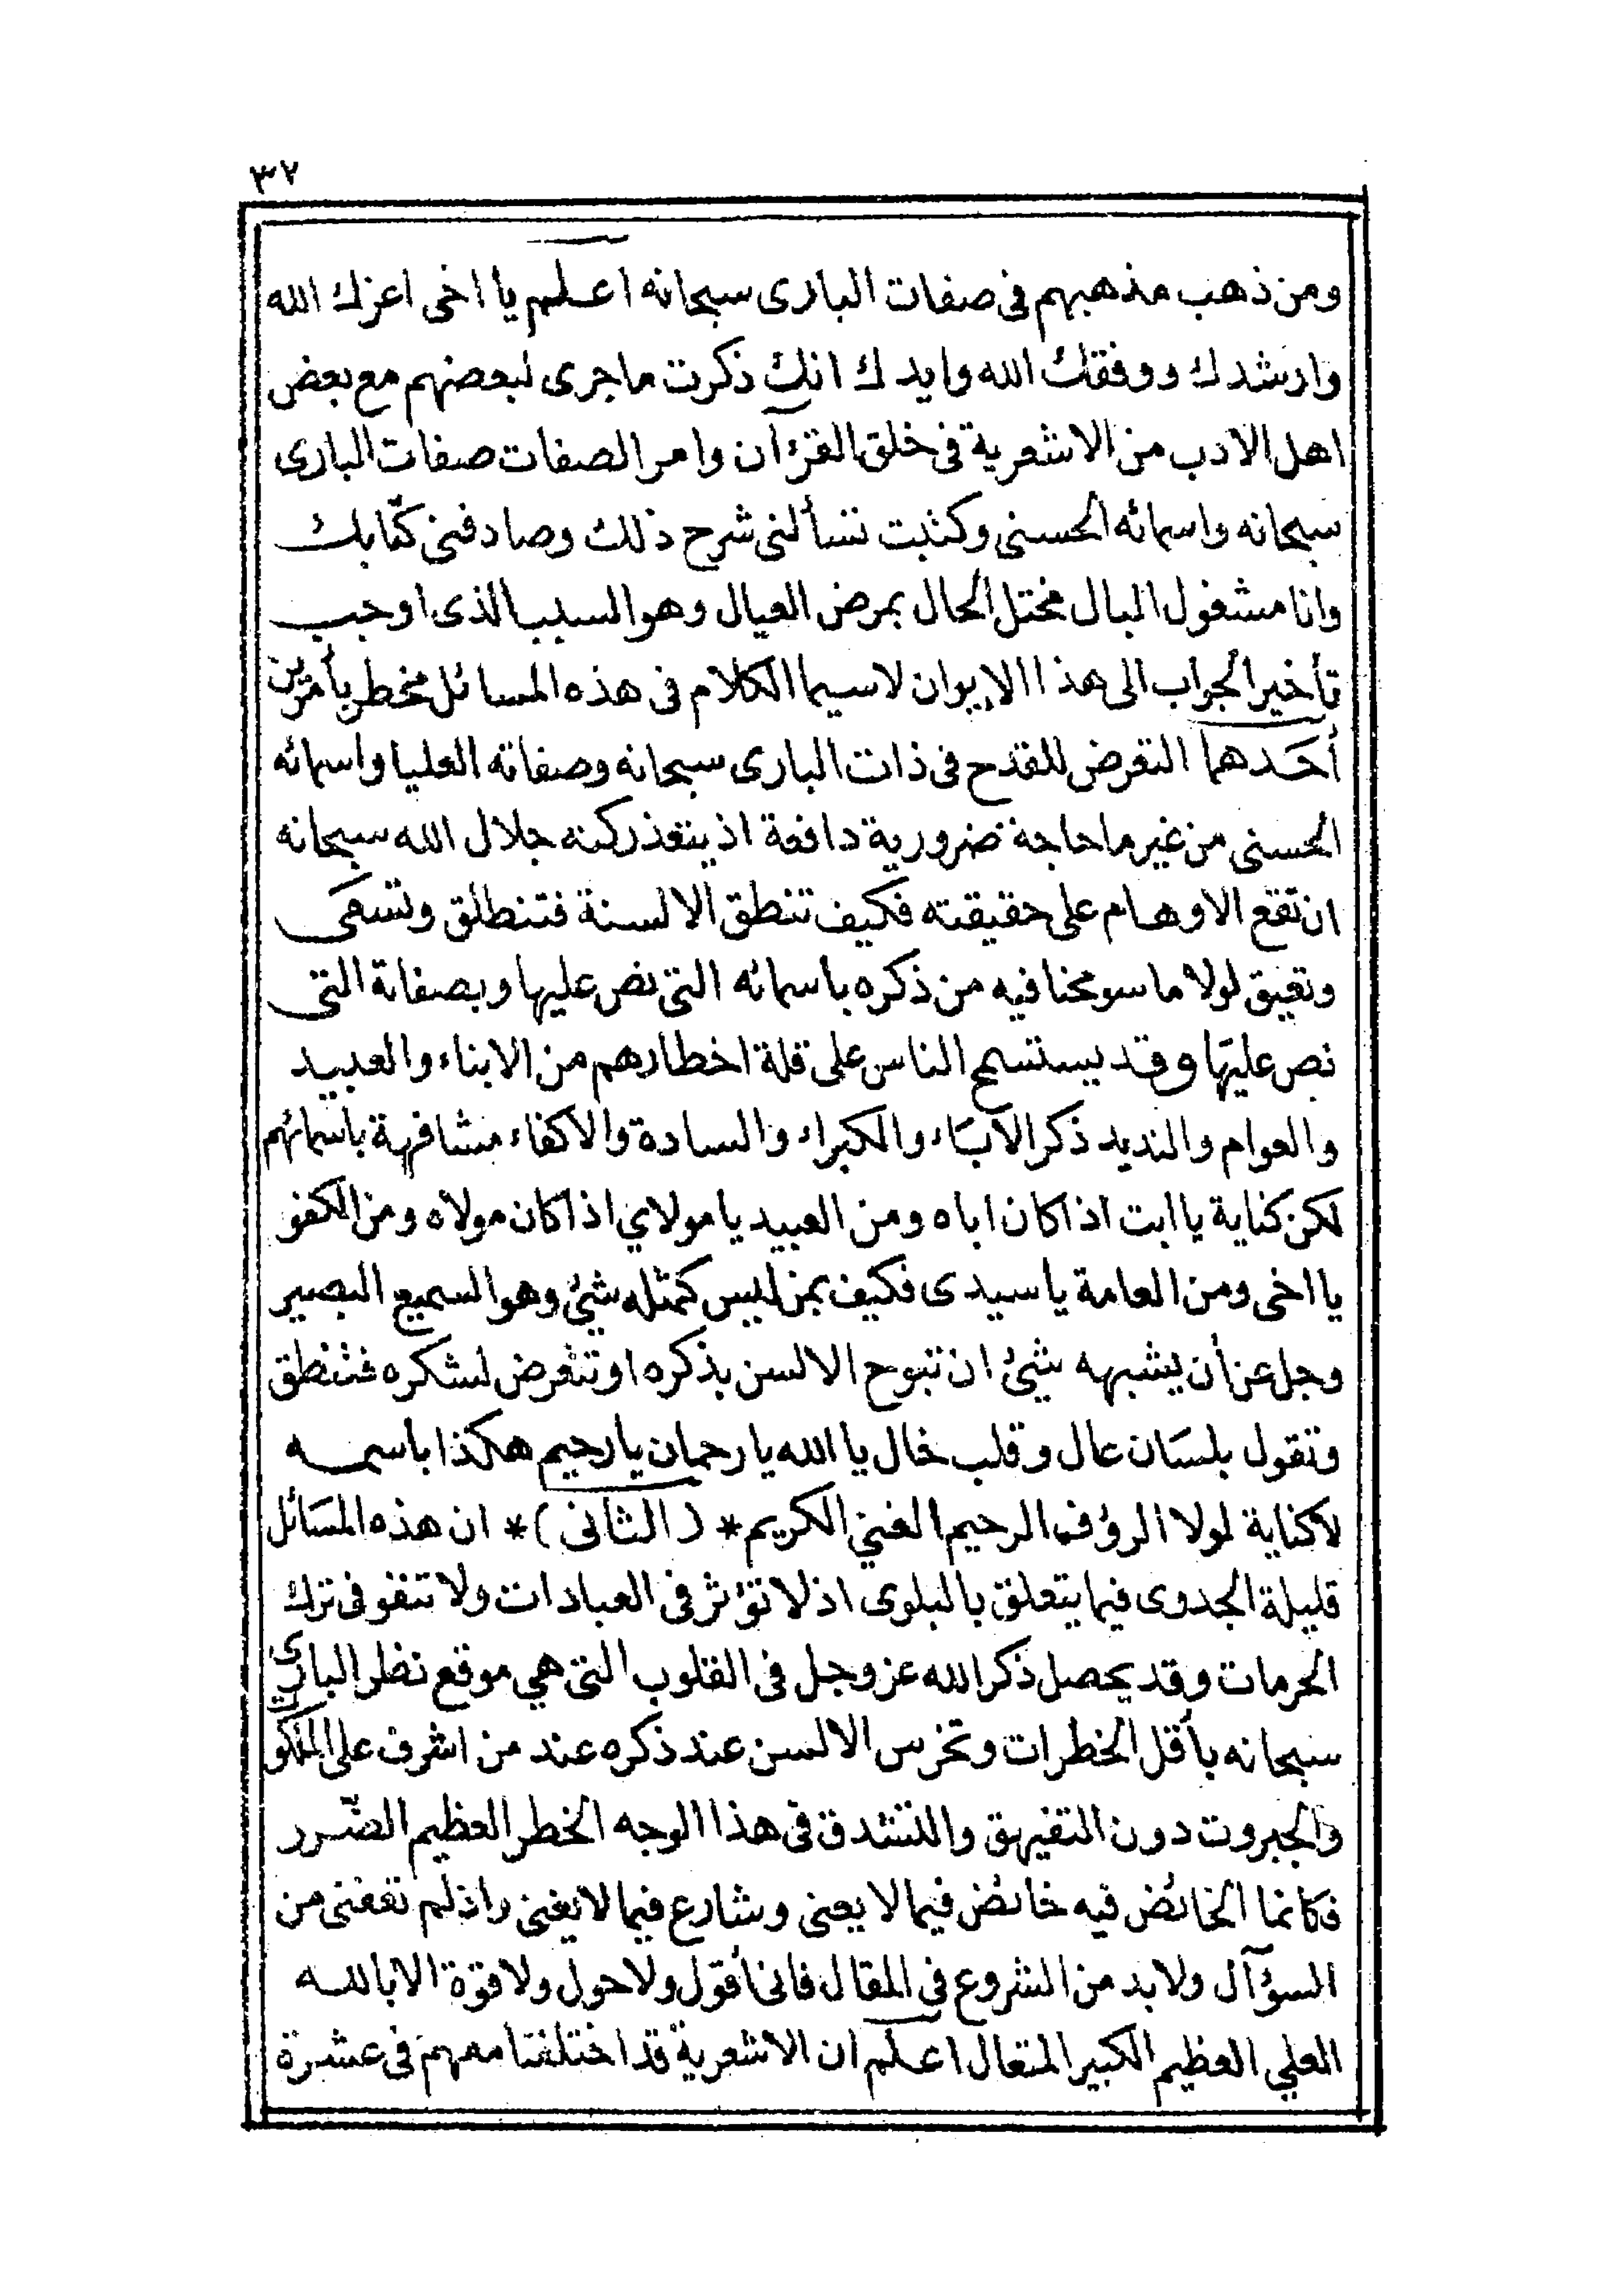 ٣٧
ومن ذهب مذهبهم فى صفات البارى سبحانه اعلم يا اخى اعزك الله
وارشدك ووفقك الله وايدك انك ذكرت ما جرى لبعضهم مع بعض
اهل الادب من الاشعرية فى خلق القرءآن وامر الصفات صفات البارى
سبحانه واسمائه الحسنى وكتبت تسألنى شرح ذلك وصادفنى كتابك
وانا مشغول البال مختل الحال بمرض العيال وهو السبب الذى اوجب
تأخير الجواب الى هذا الايوان لاسيما الكلام فى هذه المسائل مخطر بأمرين
أحَدهما التعرض للقدح فى ذات البارى سبحانه وصفاته العليا واسمائه
الحسنى من غير ما حاجة ضرورية دافعة اذ يتعذر كنه جلال الله سبحانه
ان تقع الاوهام على حقيقته فكيف تنطق الالسنة فتنطلق وتسعَى
وتعيق لولا ما سومحنا فيه من ذكره باسمائه التى نص عليها وبصفاته التى
نص عليها وقد يستسمج الناس على قلة اخطارهم من الابناء والعبيد
والعوام والنديد ذكر الآباء والكبراء والسادة والاكفاء مشافهة باسمائهم
لكن كناية يا ابت اذا كان اباه ومن العبيد يا مولاي اذا كان مولاه ومن الكفو
يا اخى ومن العامة يا سيدى فكيف بمن ليس كمثله شئ وهو السميع البصير
وجل عن أن يشبهه شيئ ان تبوح الالسن بذكره او تتعرض لشكره فتنطق
وتقول بلسَان عال وقلب خال يا الله يا رحمان يا رحيم هكذا باسمه
لا كناية لولا الرؤف الرحيم الغني الكريم * ( الثانى ) * ان هذه المسَائل
قليلة الجدوى فيما يتعلق بالبلوى اذ لا تؤثر فى العبادات ولا تنفو فى ترك
الحرمات وقد يحصل ذكر الله عز وجل فى القلوب التى هي موقع نظر البارى
سبحانه بأقل الخطرات وتخرس الالسن عند ذكره عند من اشرف على الملكوت
والجبروت دون التفيهق والتشدق فى هذا الوجه الخطر العظيم الضّرر
فكانما الخائض فيه خائض فيما لا يعنى وشارع فيما لا يغنى واذ لم تعفنى من
السؤآل ولا بد من الشروع في المقال فانى أقول ولا حول ولا قوّة الا بالله
العلي العظيم الكبير المتعال اعلم ان الاشعرية قد اختلفنا معهم فى عشرة